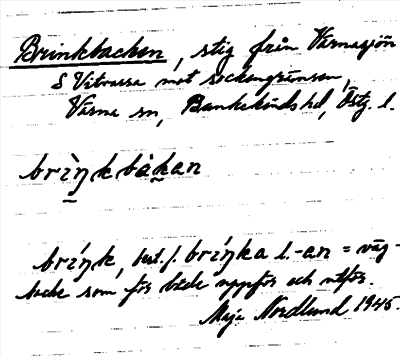 Brinkbacken, stig från Värnasjön
S Vitvassa mot sockengränsen,
Värna sn, Bankekinds hd, Östg. l.
brìŋkbàkan
bríŋk, best. f. bríŋka l. -an = väg-
backe som för både uppför och utför.
Maja Nordlund 1945.